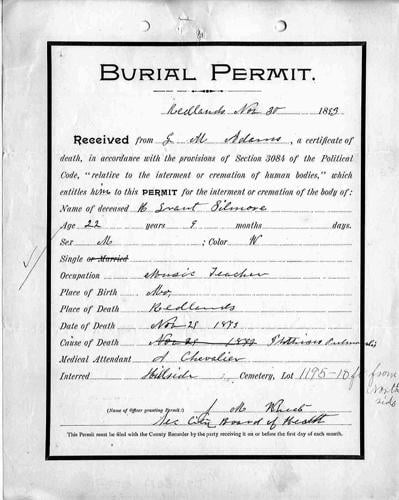 BURIAL PERMIT.
Redlands Nov 30 1893
Received from J M Adams, a certificate of
death, in accordance with the provisions of Section 3084 of the Political
Code, "relative to the interment or cremation of human bodies," which
entitles him to this PERMIT for the interment or cremation of the body of:
Name of deceased H Grant Gilmore
Age 22 years 9 months days.
Sex M ; Color W
Single or Married
Occupation Music Teacher
Place of Birth Mo,
Place of Death Redlands
Date of Death Nov 28 1893
Cause of Death Nov 28 Phthisis Pulmonalis
Medical Attendant Chevalier
Interred Hillside Cemetery, Lot 1195-10 ft from
North
side
(Name of Officer granting Permit:) J M White
Sec City Board of Health
This Permit must be filed with the County Recorder by the party receiving it on or before the first day of each month.